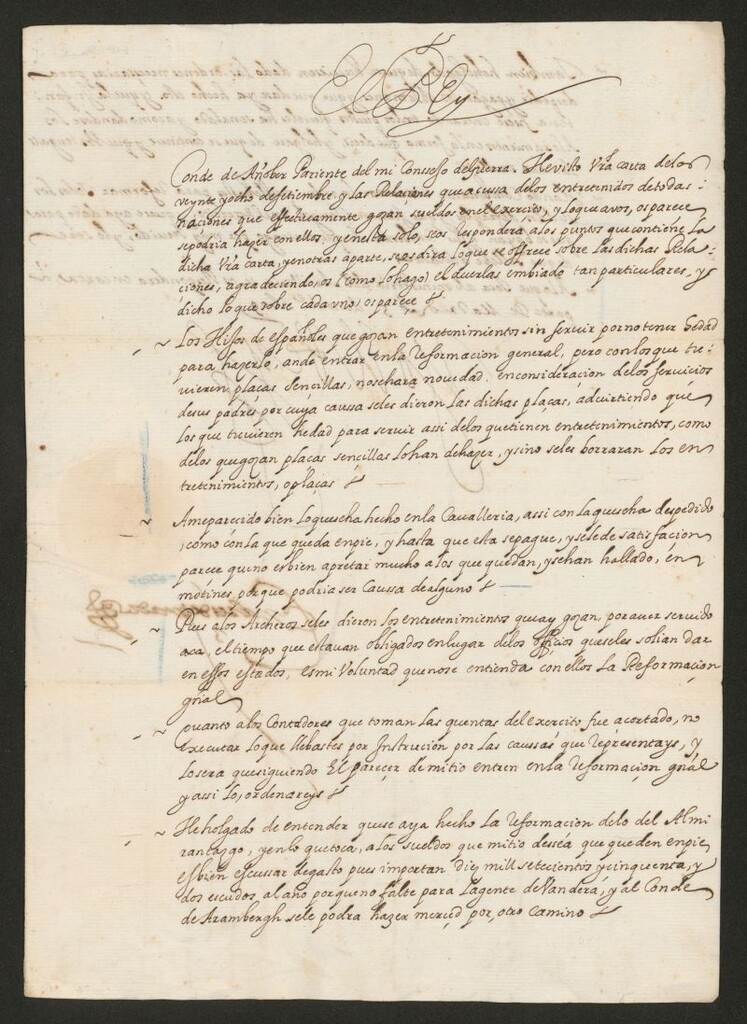 El Rey
Conde de Añober Pariente del mi Conssejo de Guerra. He visto vrã carta de los
veynte y ocho de setiembre, y las Relaciones que acussa de los entretenidos de todas
naciones que effectivamente gozan sueldos en el exercito, y lo que a vos, os parece
se podria hazer con ellos, y en esta solo, se os respondera a los puntos que contiene la
dicha vrã carta, y en otras aparte, se os dira lo que se offrece sobre las dichas Rela
ciones, agradeciendo, os (como lo hago) el averlas embiado tan particulares, y
dicho lo que sobre cada uno, os parece
Los Hijos de españoles que gozan entretenimientos sin servir por no tener hedad
para hazerlo, an de entrar en la reformacion general, pero con los que tu
vieren plaças sencillas, no se hara novedad. en consideracion de los servicios
de sus padres por cuya caussa se les dieron las dichas plaças, advirtiendo que
los que tuvieren hedad para servir assi de los que tienen entretenimientos, como
de los que gozan plaças sencillas lo han de hazer, y sino se les borraran los en
tretenimientos, o plaças
A me parecido bien lo que se ha hecho en la Cavalleria, assi con la que se ha despedido
, como con la que queda en pie, y hasta que esta se pague, y se le de satisfacion
parece que no es bien apretar mucho a los que quedan, y se han hallado, en
motines porque podria ser caussa de alguno
Pues a los Archeros se les dieron los entretenimientos que ay gozan, por aver servido
aca, el tiempo que estavan obligados en lugar de los officios que se les solian dar
en essos estados, es mi voluntad que no se entienda con ellos la Reformacion
gñal
quanto a los Contadores que toman las quentas del exercito fue acertado, no
executar lo que llebastes por Instrucion por las caussas que representays, y
lo sera que siguiendo el parecer de mi tio entren en la reformacion gñal
y assi lo, ordenareys
He holgado de entender que se aya hecho la reformacion de lo del Almi
rantazgo, y en lo que toca, a los sueldos que mi tio dessea que queden en pie
es bien escussar de gasto pues importan diez mill setecientos y cinquenta, y
dos escudos al año porque no falte para la gente de vandera, y al Conde
de Arambergh se le podra hazer merced por, otro camino